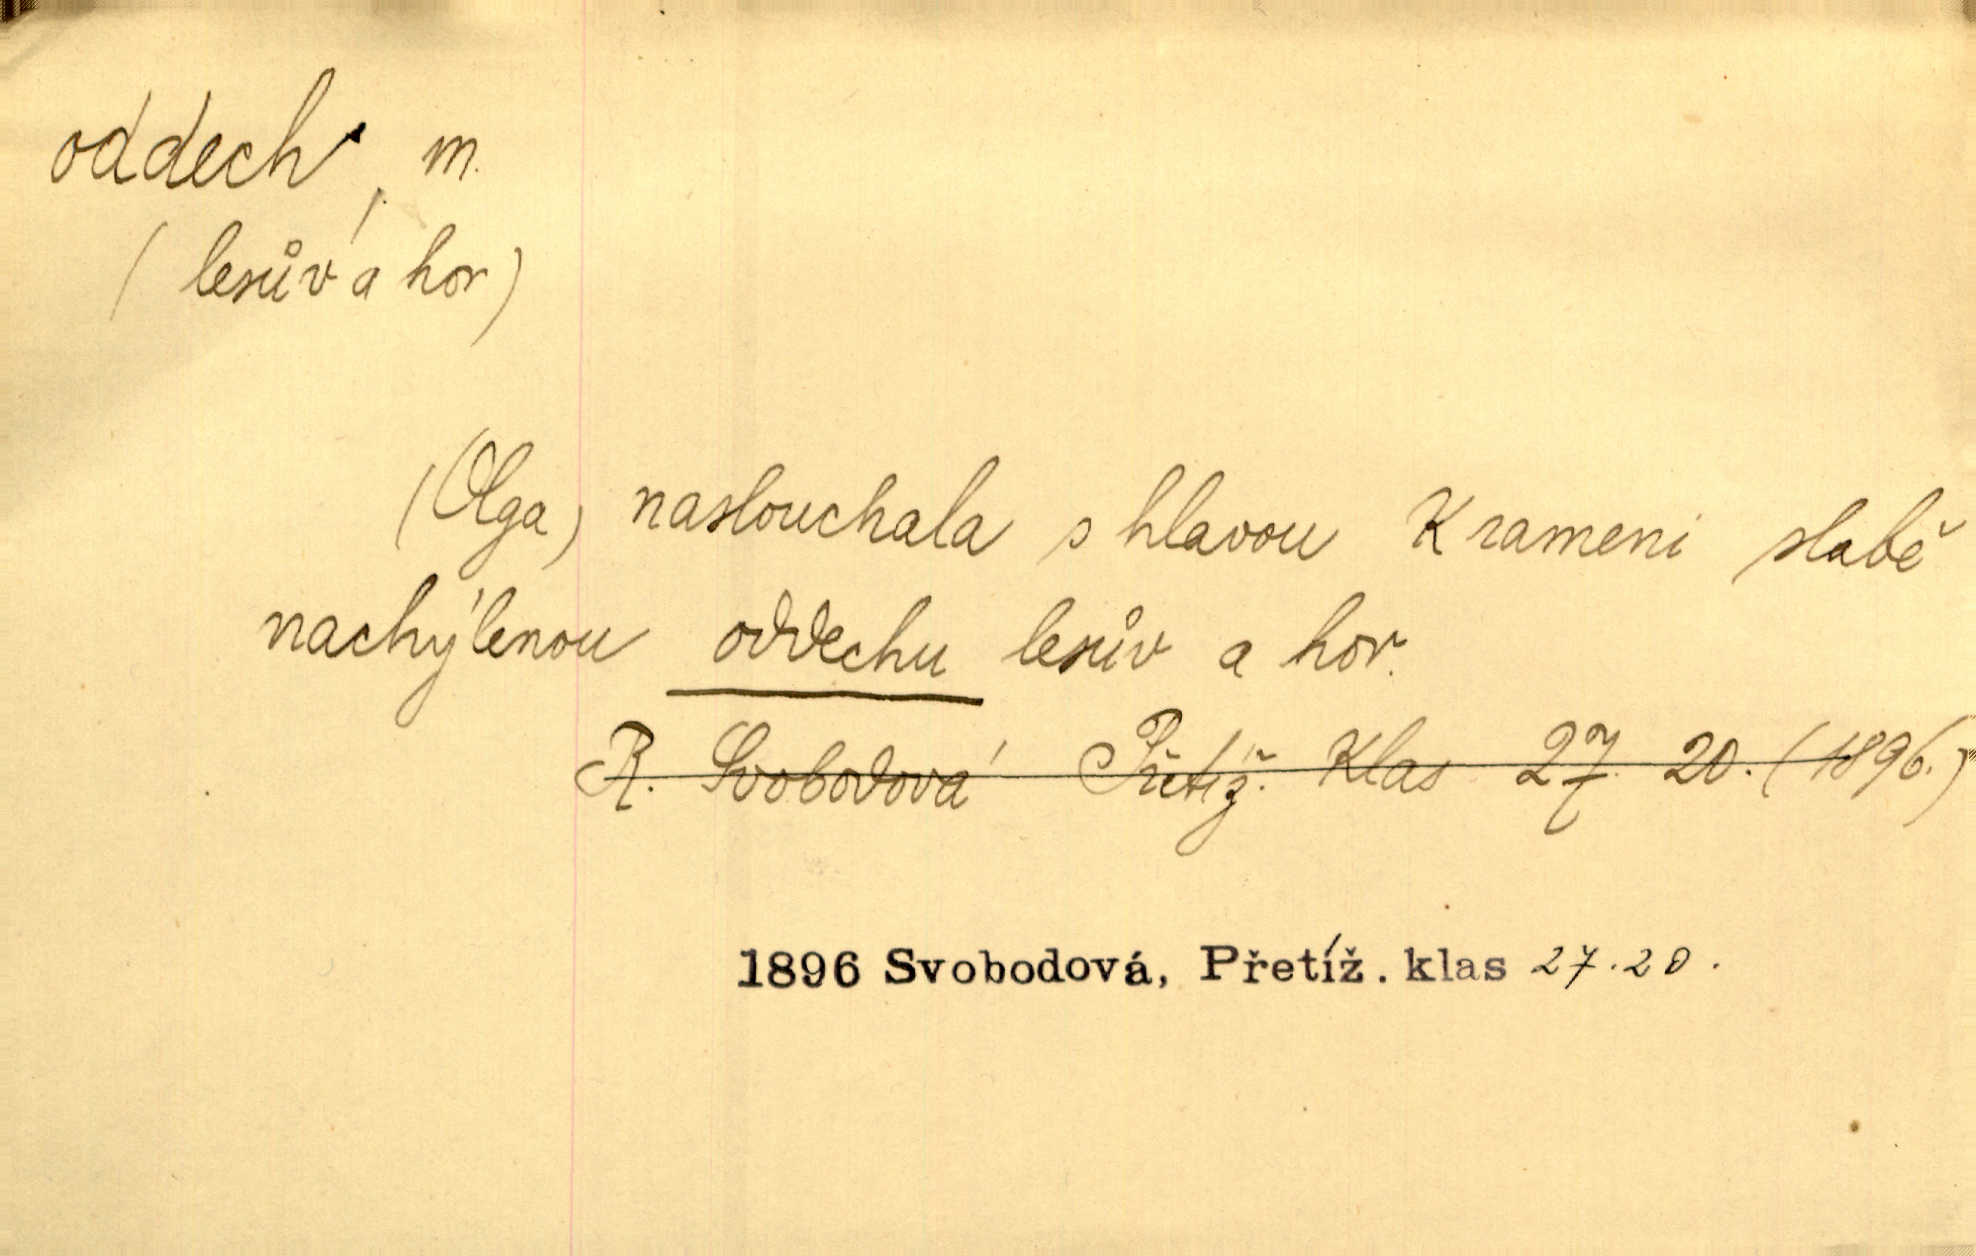 oddech, m.
(lesův a hor)
(Olga) naslouchala s hlavou K rameni slabě
nachýlenou oddechu lesův a hor.
R. Svobodová Přetíž. Klas 27. 20. (1896.)
1896 Svobodová, Přetíž. klas 27.20.